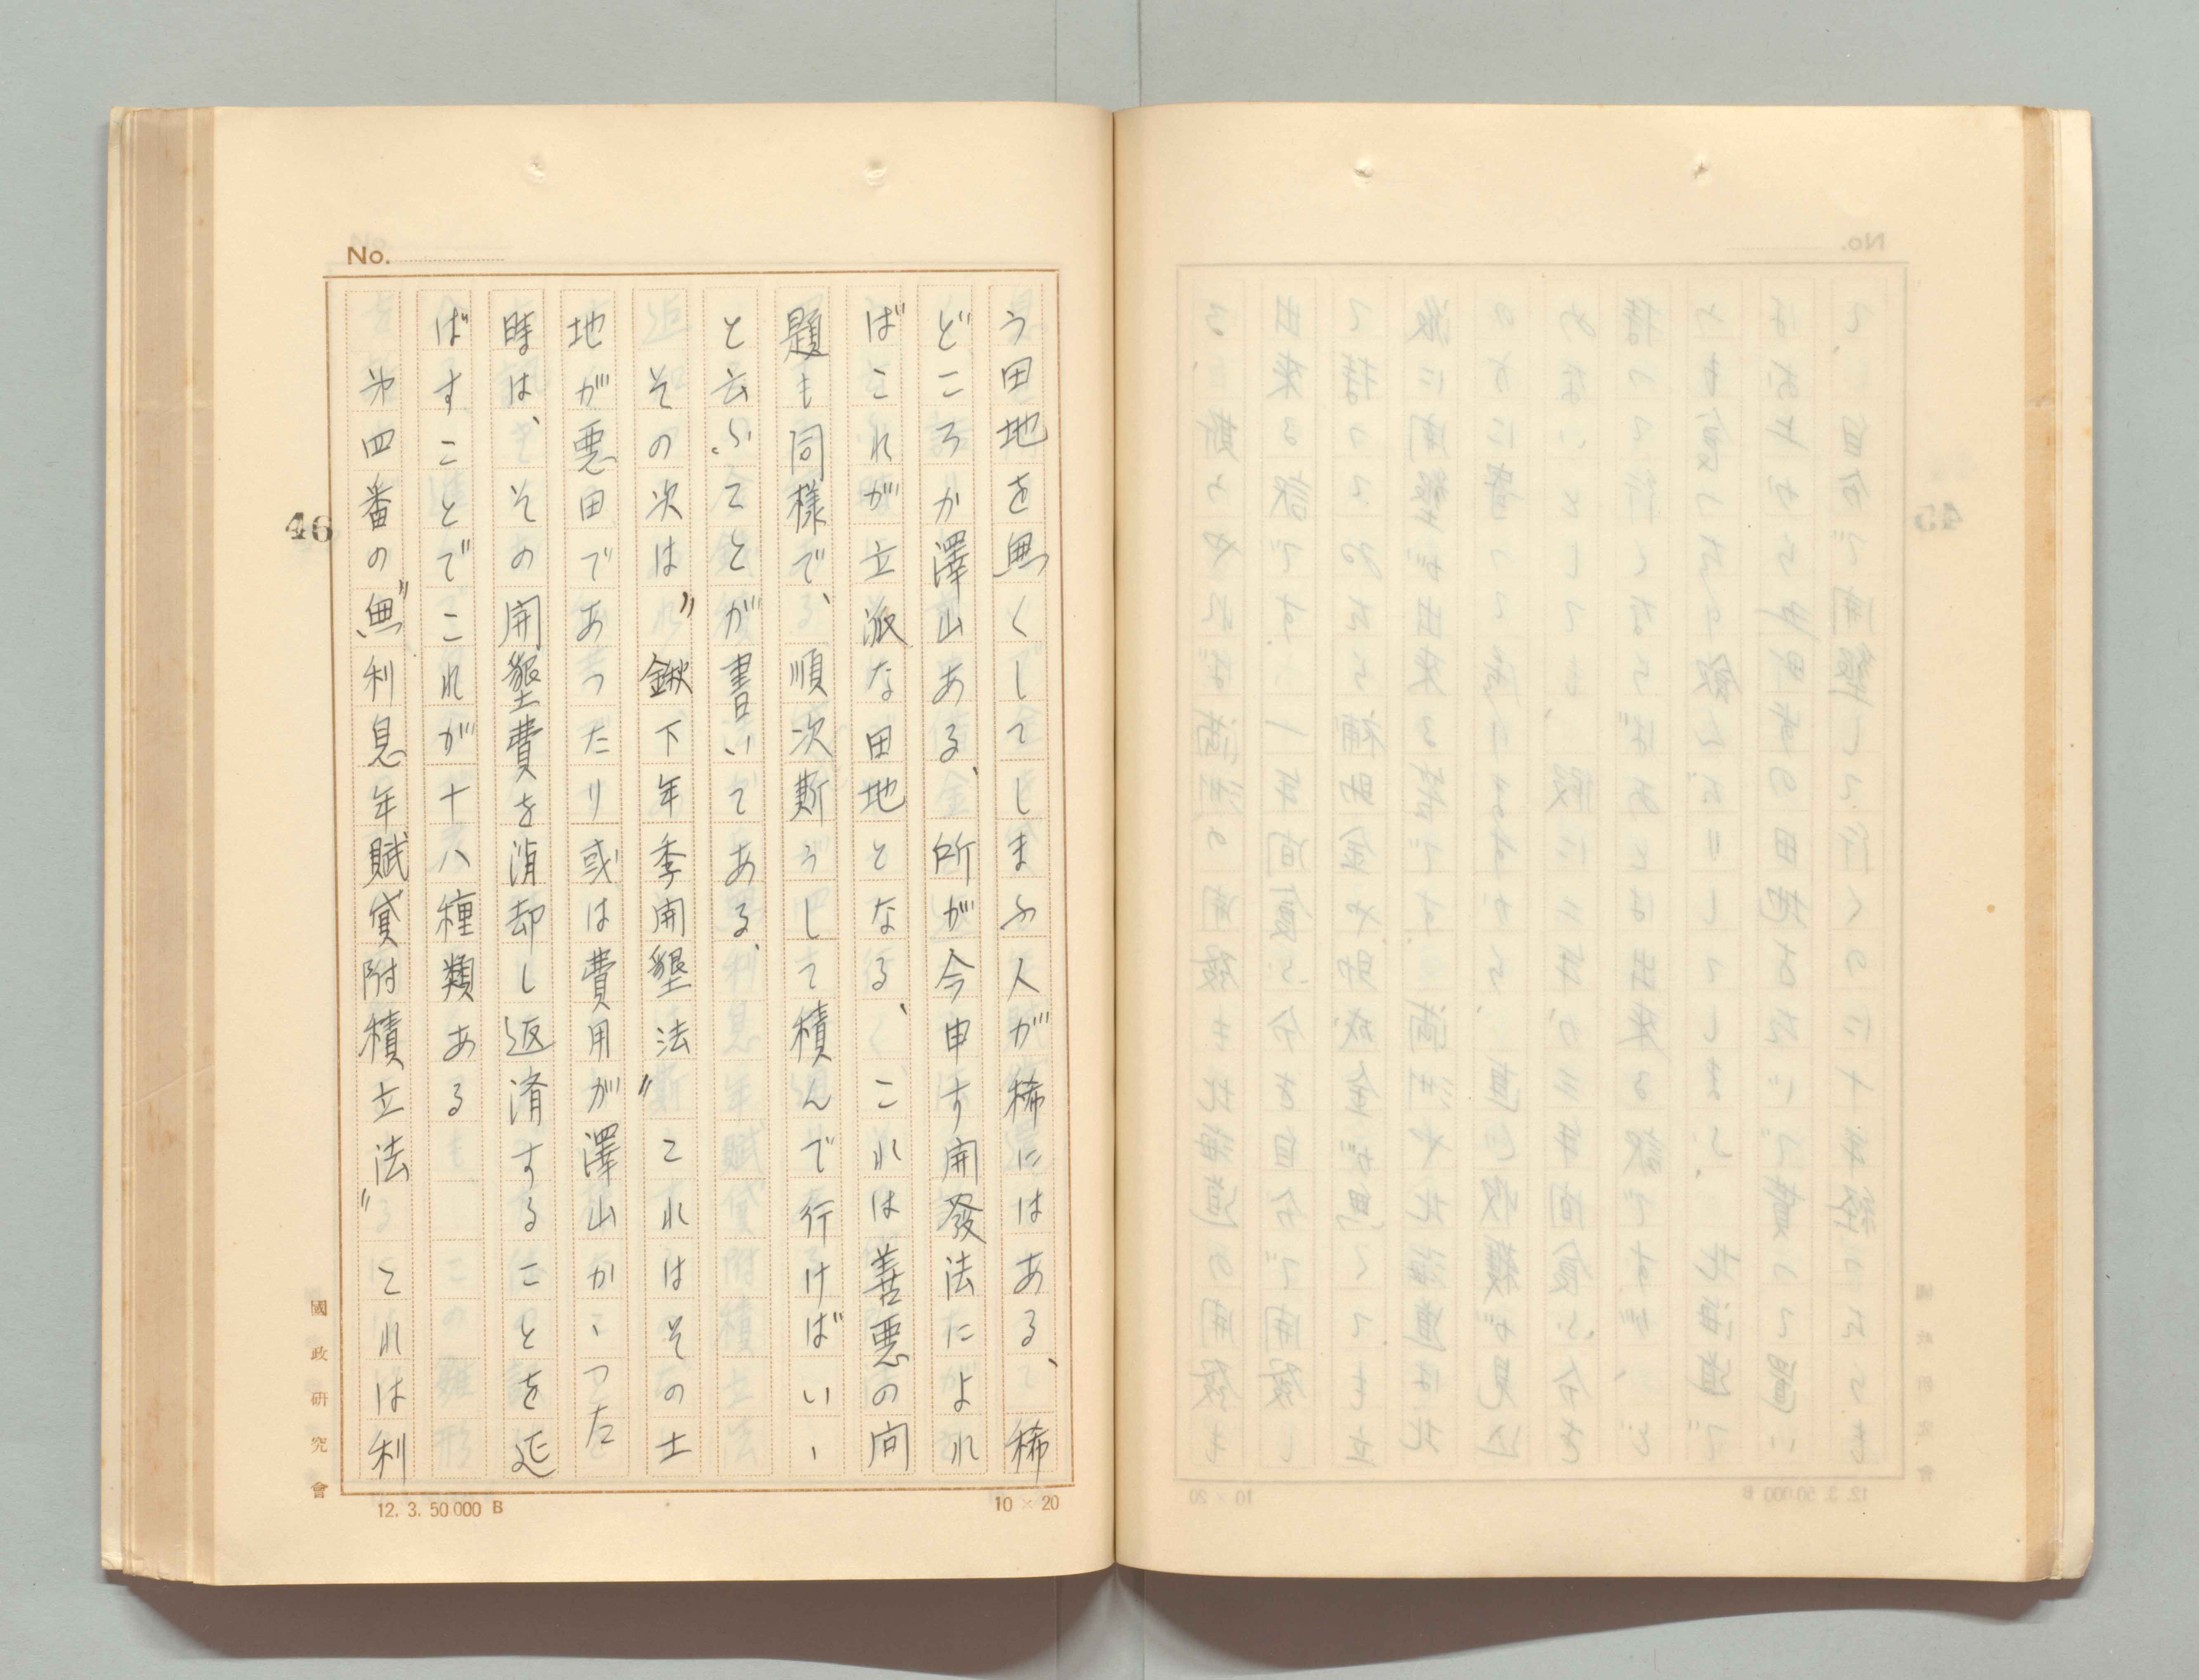 No.
う田地を無くしてしまふ人が稀にはある、稀
どころか澤山ある、所が今申す開發法によれ
ばこれが立派な田地となる、これは善悪の問
題も同様で、順次斯うして積んで行けばいゝ
と云ふことが書いてある、
その次は〝鍬下年季開墾法〟これはその土
地が悪田であつたり或は費用が澤山かゝつた
時は、その開墾費を消却し返済することを延
ばすことでこれが十八種類ある
第四番の〝無利息年賦貸附積立法〟これは利
46
國政研究會
12. 3. 50.000 B
10 × 20